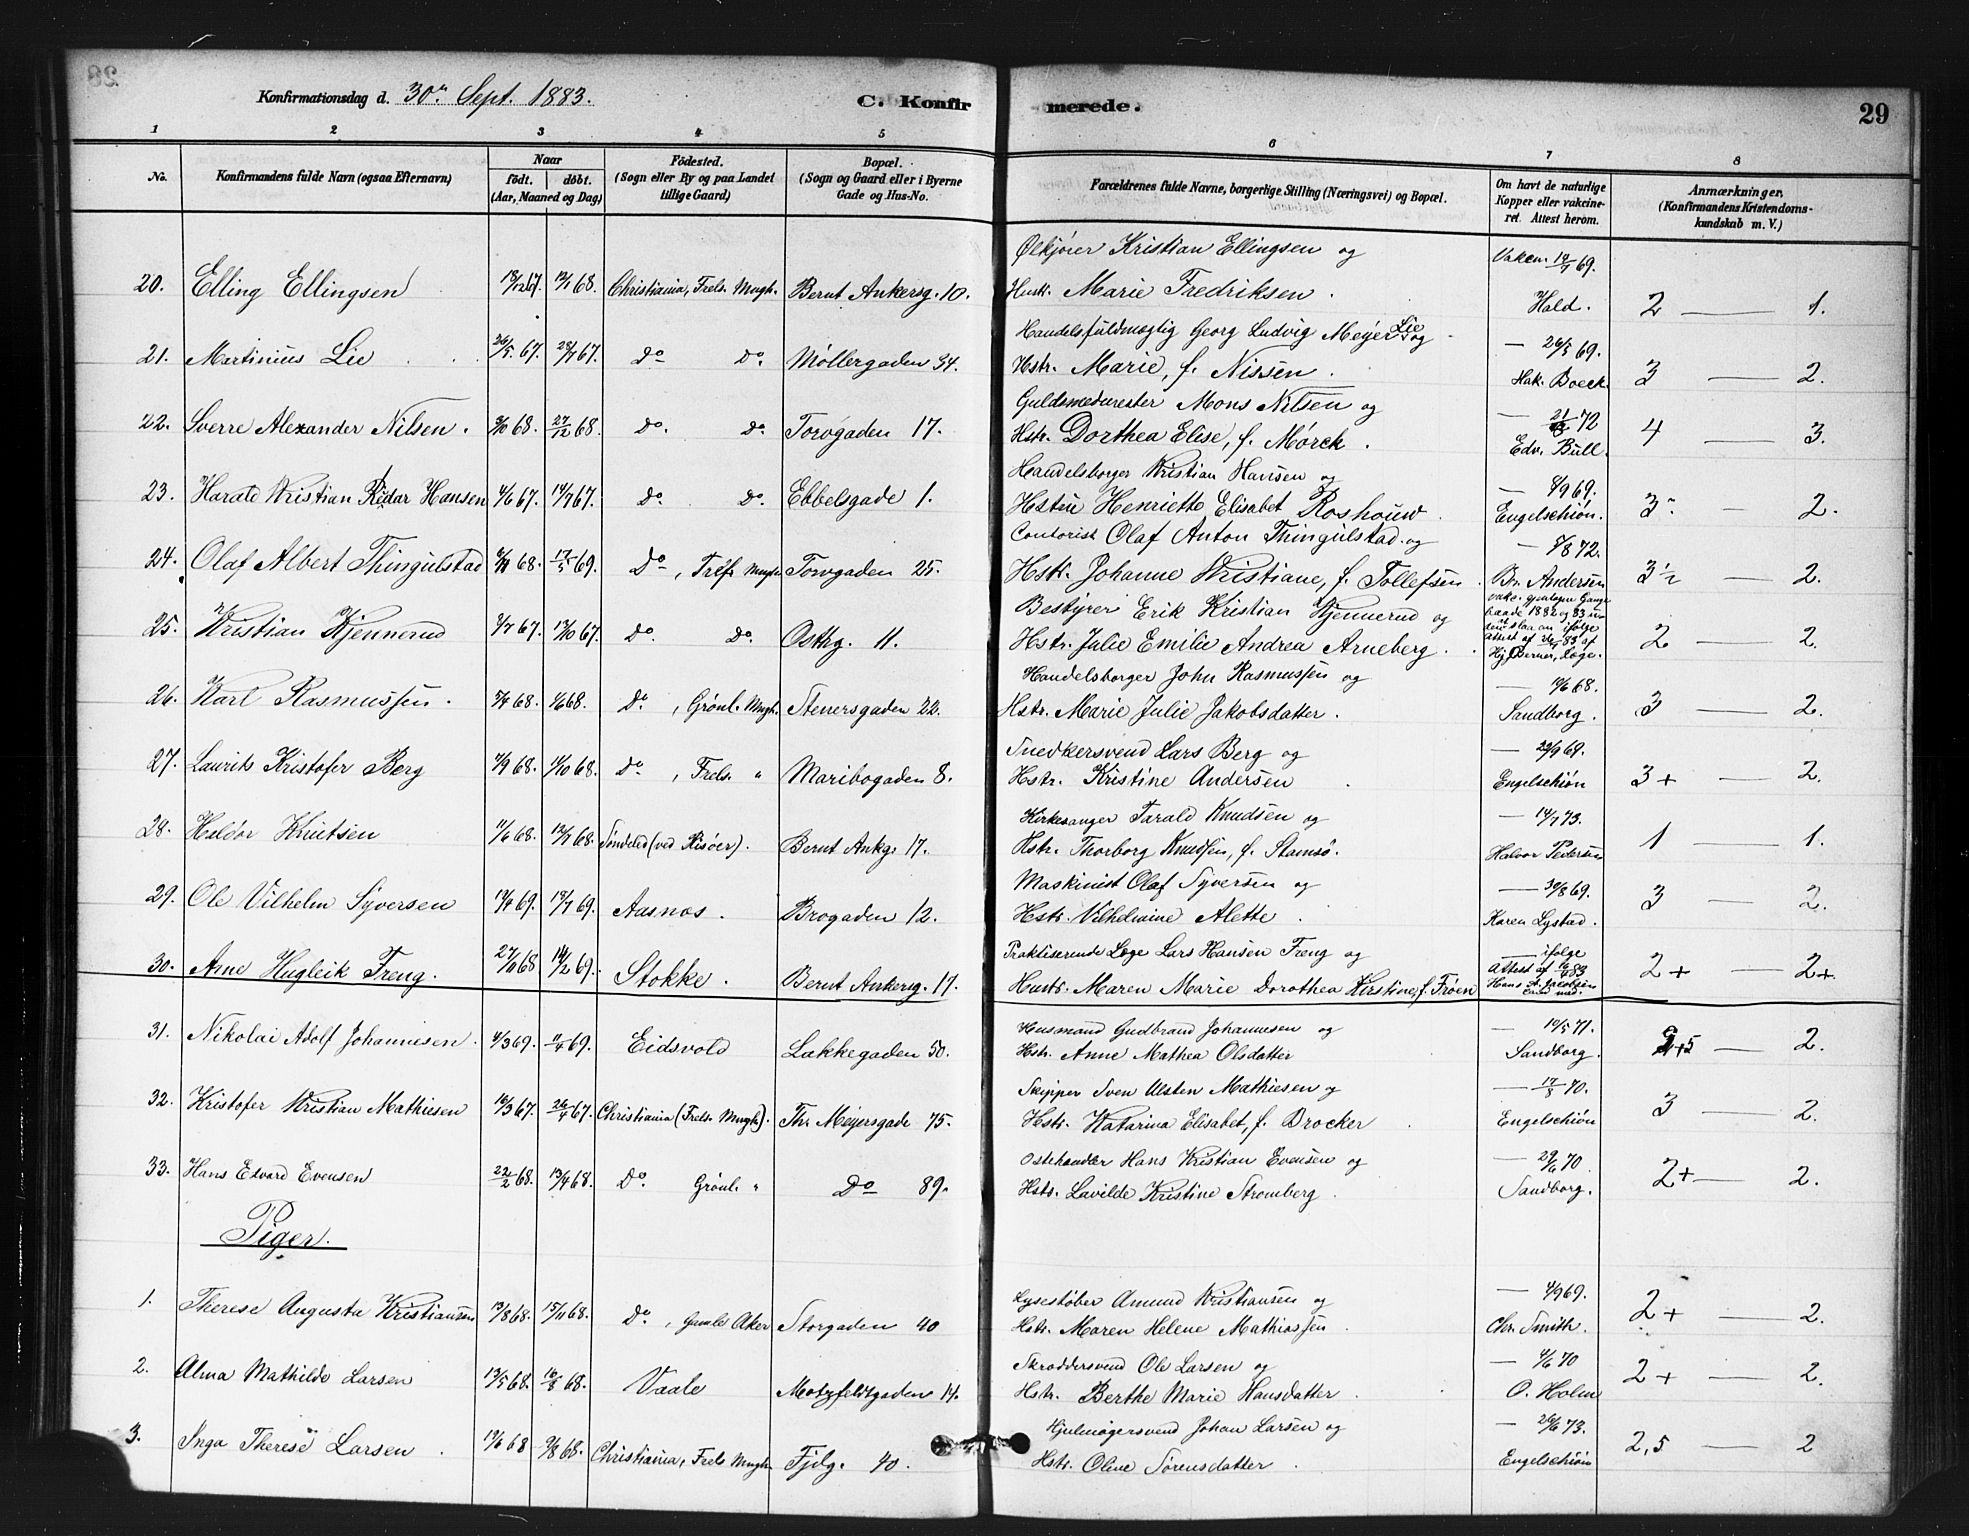 Konfirmationsdag d. 30te Sept. 1883.
C. Konfirmerede.
29
1 2 3 4 5 6 7 8
No.
Konfirmandens fulde Navn (ogsaa Efternavn)
Naar
födt. döbt.
(Aar, Maaned og Dag)
Födested.
(Sogn eller By og paa Landet
tillige Gaard)
Bopæl.
(Sogn og Gaard eller i Byerne
Gade og Hus-No.
Forældrenes fulde Navne, borgerlige Stilling (Næringsvei) og Bopæl.
Om havt de naturlige
Kopper eller vakcine-
ret. Attest herom.
Anmærkninger,
(Konfirmandens Kristendoms-
kundskab m. V.)
Ølkjører Kristian Ellingsen og Vakcn. 19/7 69.
20. Elling Ellingsen 18/12 67. 12/1 68. Christiania, Frels. Mngh. Bernt Ankersg. 10. Hustr. Marie Fredriksen. Hald. 2 — 1.
Handelsfuldmægtig Georg Ludvig Meyer Lie og — 26/5 69.
21. Martinius Lie 26/5 67. 28/7 67. Do Do. Møllergaden 34. Hstr. Marie, f. Nissen. Hak. Boeck. 3 — 2.
Guldsmedmester Mons Nilsen og — 72
22. Sverre Alexander Nilsen. 9/10 68. 27/12 68. Do. Do. Torvgaden 17. Hstr. Dorthea Elise, f. Mørck. Edv. Bull. 4 — 3.
Handelsborger Kristian Hansen og — 8/9 69.
23. Harald Kristian Ridar Hansen 4/6 67. 14/7 67. Do. Do. Ebbelsgade 1. Hstru Henriette Elisabet Roshouw. Engelschiøn. 3- — 2.
Contorist Olaf Anton Thingulstad og — 8/8 72.
24. Olaf Albert Thingulstad 68. 17/5 69. Do, Trefs. Mngh. Torvgaden 25. Hstr. Johanne Kristiane, f. Tollefsen. Br. Andersen 3½ — 2.
Bestyrer Erik Kristian Kjennerud og
vakc. gjentagne Gange
baade 1882 og 83 uden
at slaa an ifølge
attest af 26/9 83 af
Hj. Berner, Læge.
25. Kristian Kjennerud 7/7 67. 13/10 67. Do. Do. Ostkg. 11. Hstr. Julie Emilie Andrea Arneberg. 2 — 2.
Handelsborger John Rasmussen og — 10/6 68.
26. Karl Rasmussen. 68. 1/6 68. Do., Grønl. Mngh. Stenersgaden 22. Hstr. Marie Julie Jakobsdatter. Sandborg. 3 — 2.
Snedkersvend Lars Berg og — 29/9 69.
27. Laurits Kristofer Berg 7/9 68. 11/10 68. Do, Frels. " Maribogaden 8. Hstr. Kristine Andersen Engelschiøn 3+ — 2.
Kirkesanger Tarald Knudsen og — 14/7 73.
28. Haldor Knutsen 11/6 68. 12/7 68. Søndeled (ved Risøer). Bernt Ankg. 17. Hstr. Thorborg Knudsen, f. Stamsø. Halvor Pedersen 1 — 1.
Maskinist Olaf Syversen og — 30/8 69.
29. Ole Vilhelm Syversen 13/4 69. 18/7 69. Aasnes. Brogaden 12. Hstr. Vilhelmine Alette. Karen Lystad. 3 — 2.
Praktiserende Læge Lars Hansen Freng og — ifølge
Attest af 16/4 83
30. Arne Hugleik Freng. 27/11 68 14/2 69. Stokke. Bernt Ankersg. 17. Hustr. Maren Marie Dorothea Kirstine, f. Frøen Hans A. Jacobsen 2+ — 2+
Husmand Gudbrand Johannesen og — 10/5 71.
31. Nikolai Adolf Johannesen. 4/3 69. 11/4 69. Eidsvold Lakkegaden 50. Hstr. Anne Mathea Olsdatter Sandborg. 2,5 — 2.
Skipper Sven Ulsten Mathiesen og — 17/5 70.
32. Kristofer Kristian Mathiesen 16/3 67. 26/4 67. Christiania (Frels. Mngh.). Thv. Meyersgade 75. Hstr. Katarina Elisabet, f. Brocker Engelschiøn 3 — 2.
Ostehandler Hans Kristian Evensen og — 29/6 70
33. Hans Edvard Evensen 22/2 68. 13/4 68. Do. Grønl. " Do 89. Hstr. Lavilde Kristine Stromberg. Sandborg. 2+ — 2.
Piger.
Lysestøber Amund Kristiansen og — 4/9 69.
1. Therese Augusta Kristiansen 13/8 68. 15/11 68. Do, Gamle Aker Storgaden 40 Hstr. Maren Helene Mathiassen Chr. Smith. 2+ — 2.
Skræddersvend Ole Larsen og — 4/6 70
2. Alma Mathilde Larsen 13/5 68. 16/8 68. Vaale Motzfeldtgaden 14. Hstr. Berthe Marie Hansdatter. O. Holm 2+ — 2.
Hjulmagersvend Johan Larsen og — 26/6 73.
3. Inga Therese Larsen. 19/6 68 9/8 68. Christiania, Frels Mngh. Fjdlg. 40. Hstr. Oline Sørensdatter. Engelschiøn 2,5 — 2